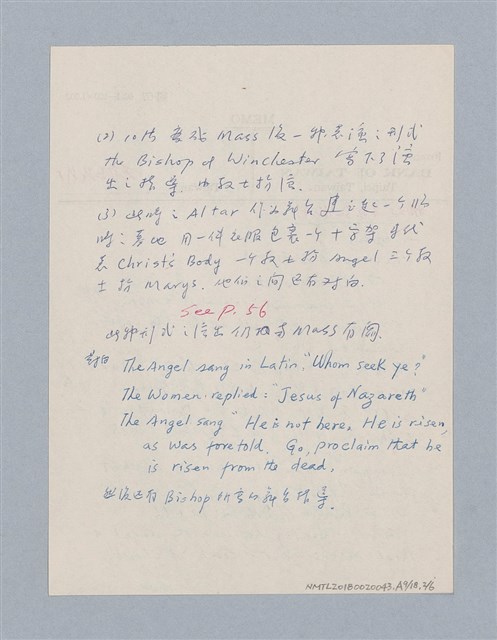 (2) 10世 變為 Mass 後一種表演之形式
the Bishop of Winchester 寫下了演
出之指導 由教士扮演.
(3) 此時之 Altar 作為舞台 建造一个臨
時之墓地 用一件衣服包裹一个十字架 代
表 Christ's Body 一个教士扮 Angel 三个教
士扮 Marys. 他們之間已有對白.
See P. 56
此種形式之演出仍 Mass 有関.
對白 The Angel sang in Latin, "Whom seek ye?"
The Women replied: "Jesus of Nazareth"
The Angel sang " He is not here, He is risen,
as was foretold. Go, proclaim that he
is risen from the dead.
Bishop 所寫的舞台指導.
NMTL20180020043.A9/18.2/6